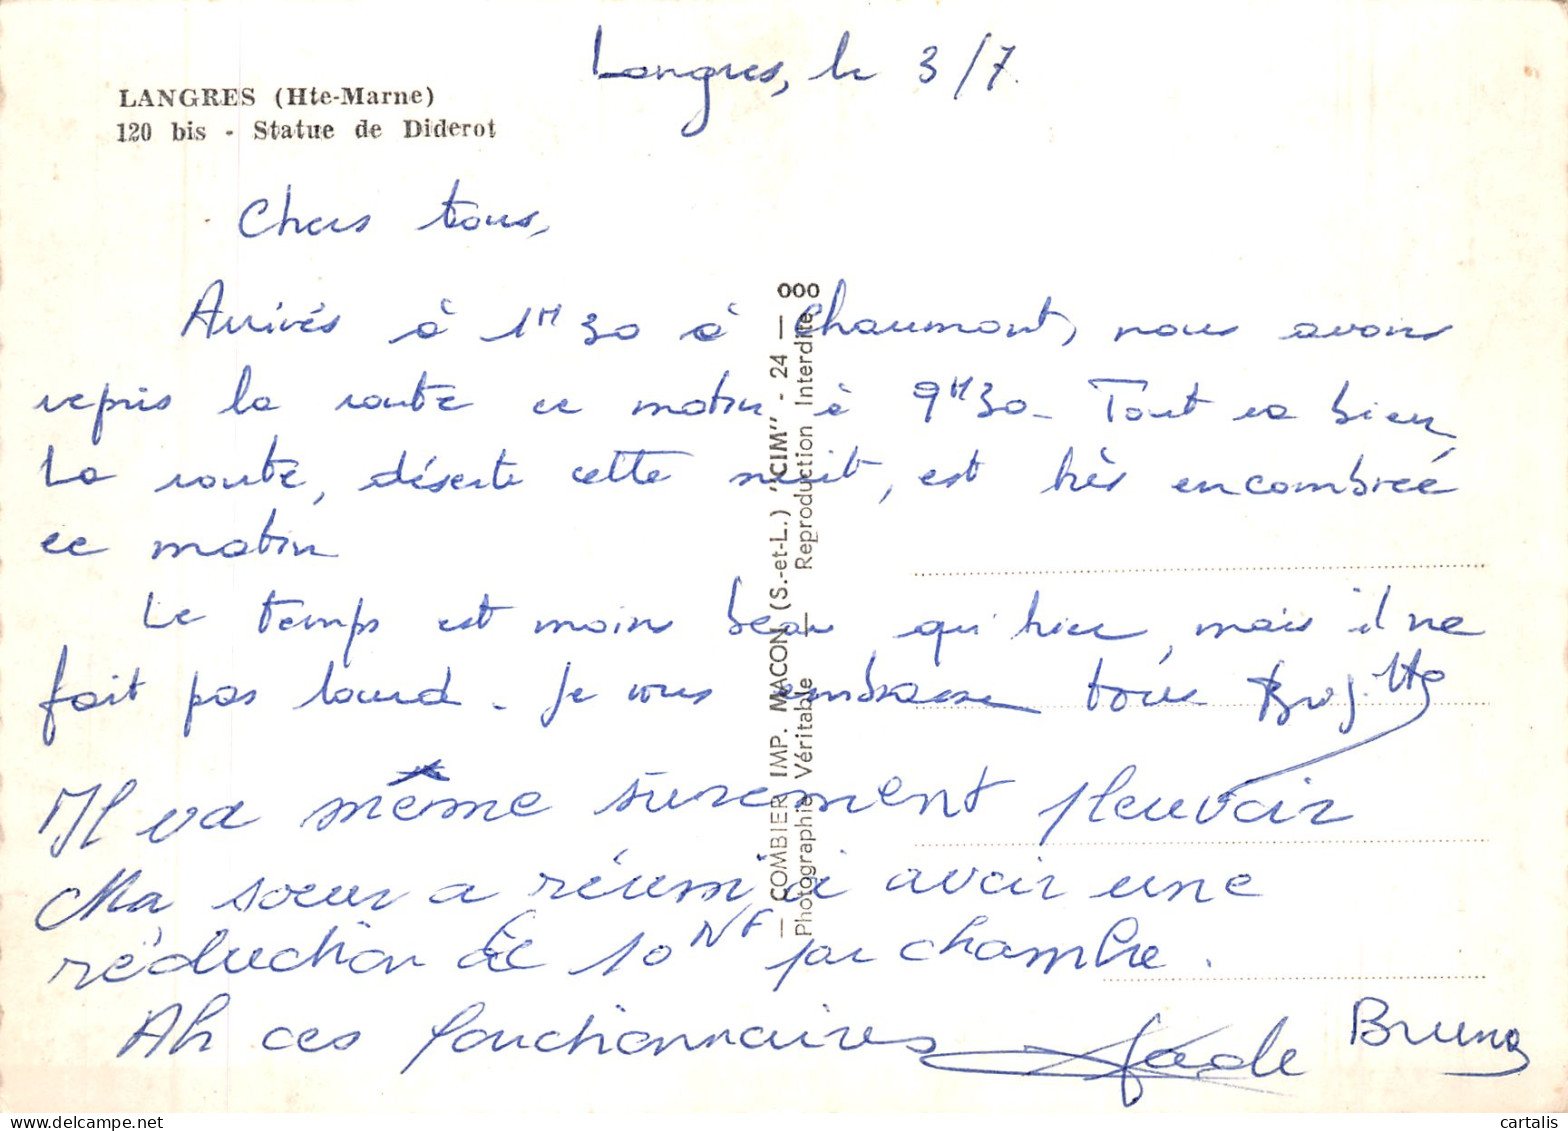 Langres, le 3/7.
LANGRES (Hte-Marne)
120 bis - Statue de Diderot
Chers tous,
Arrivés à 1H30 à Chaumont, nous avons
repris la route ce matin à 9H30 - Tout va bien,
La route, déserte cette nuit, est très encombrée
ce matin
Le temps est moins beau qu'hier, mais il ne
fait pas lourd. Je vous embrasse tous Brigitte
Il va même surement pleuvoir
Ma sœur a réussi à avoir une
réduction de 10 NF par chambre.
Ah ces fonctionnaires
Bruno
— COMBIER IMP. MACON (S.-et-L.) "CIM" - 24 — 000
Photographie Véritable — Reproduction Interdite
cartalis